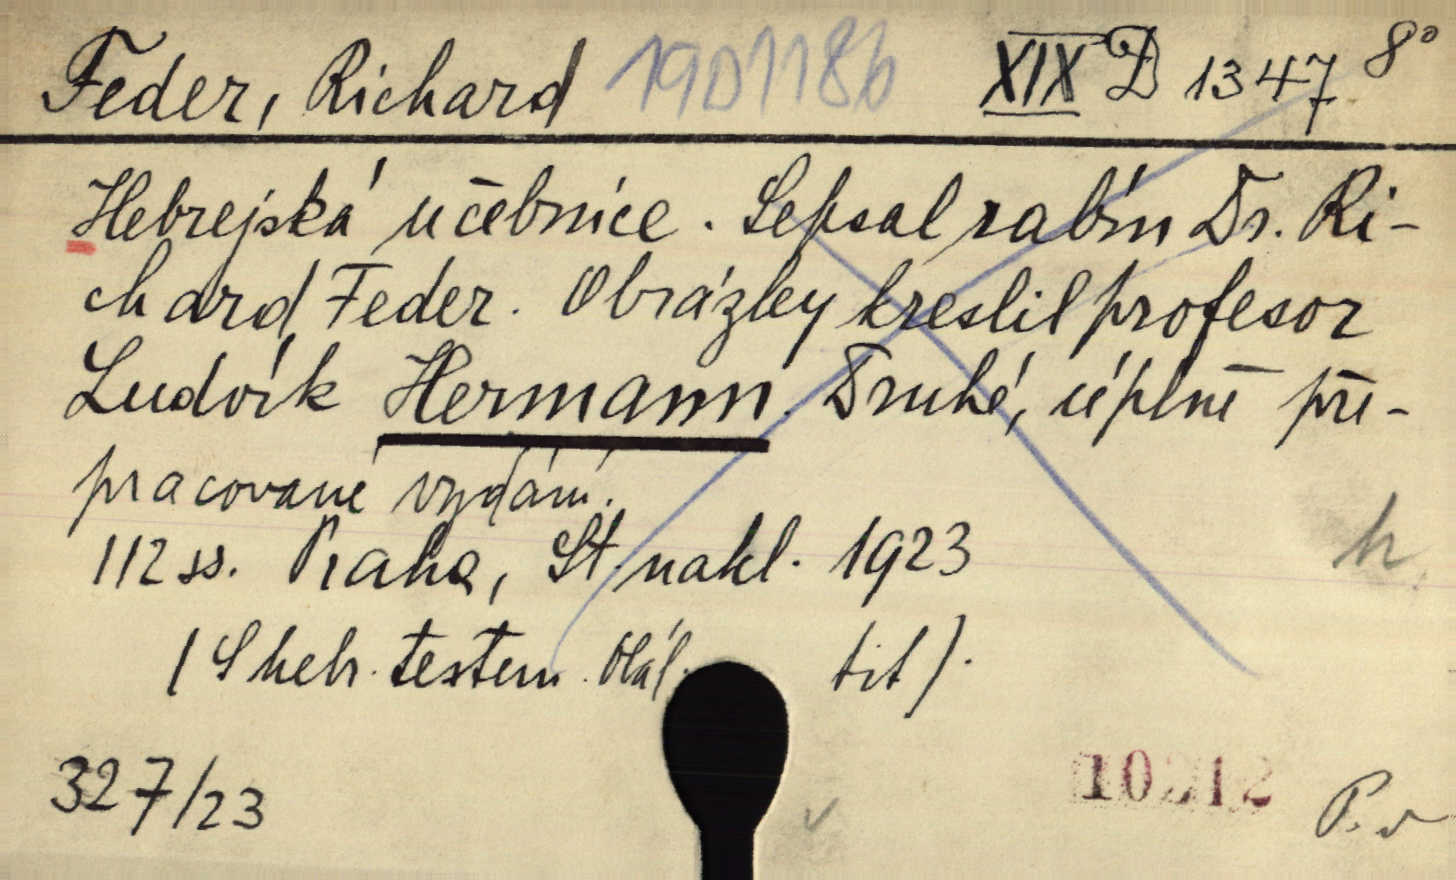 Feder, Richard 190118b XIX D 1347 8°
Hebrejská učebnice. Sepsal rabín Dr. Ri-
chard Feder. Obrázky kreslil profesor
Ludvík Hermann. Druhé, úplně pře-
pracované vydání.
112 ss. Praha, St. nakl. 1923
(S hebr. textem. Obál. tit).
327/23
10212
P. v
h.